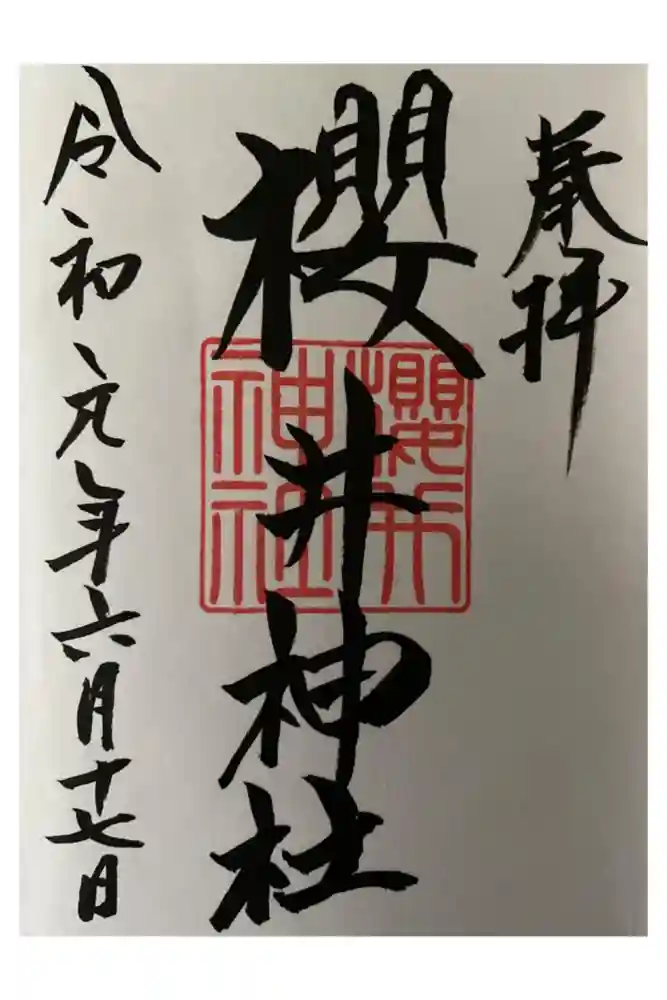 奉拝
櫻井神社
櫻井神社
令和元年六月十七日